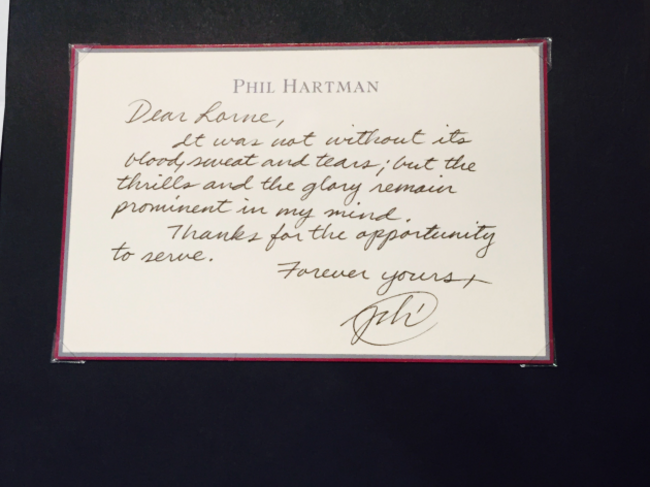 PHIL HARTMAN
Dear Lorne,
It was not without its
blood, sweat and tears; but the
thrills and the glory remain
prominent in my mind.
Thanks for the opportunity
to serve.
Forever yours,
Phil